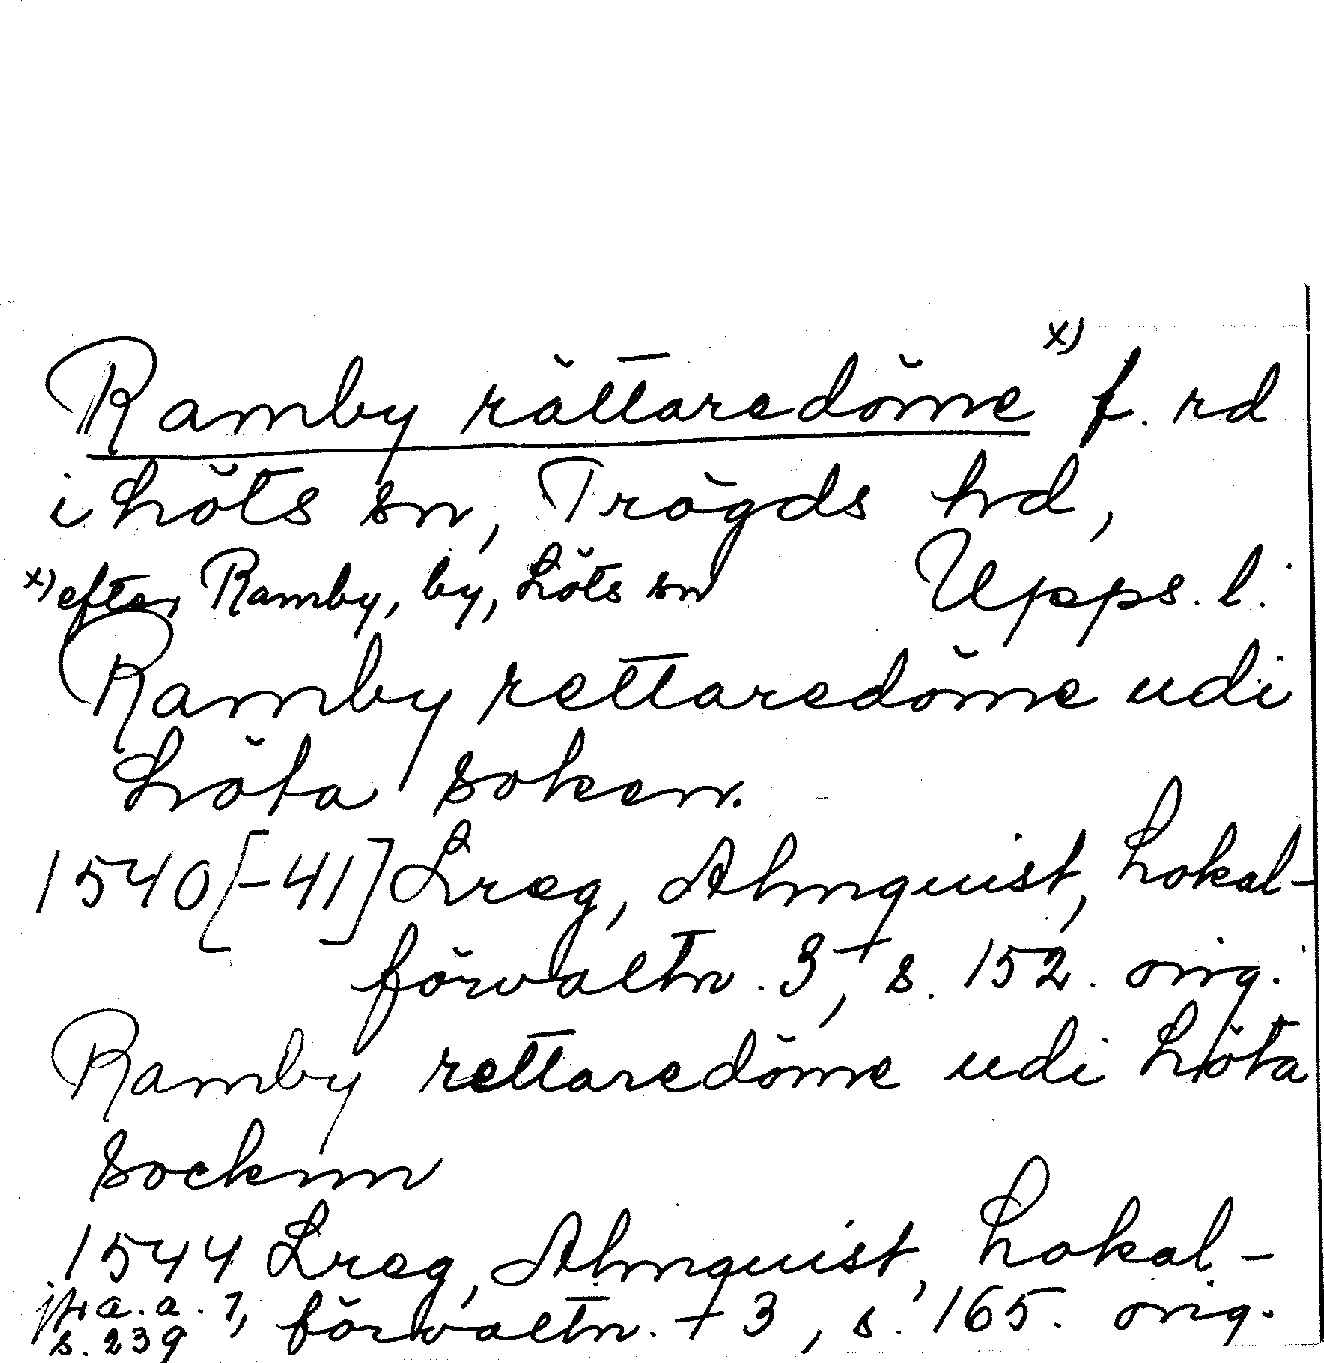 Ramby rättaredöme x) f. rd
i Löts sn, Trögds hd,
x) efter Ramby, by, Löts sn Upps. l.
Ramby rettaredöme udi
Löta soken.
1540[-41] Lreg, Almquist, Lokal-
förvaltn. 3+, s. 152. orig.
Ramby rettaredöme udi Löta
socknn
1544 Lreg, Almquist, Lokal-
förvaltn. + 3, s. 165. orig.
jfr a. a. 1,
s. 239